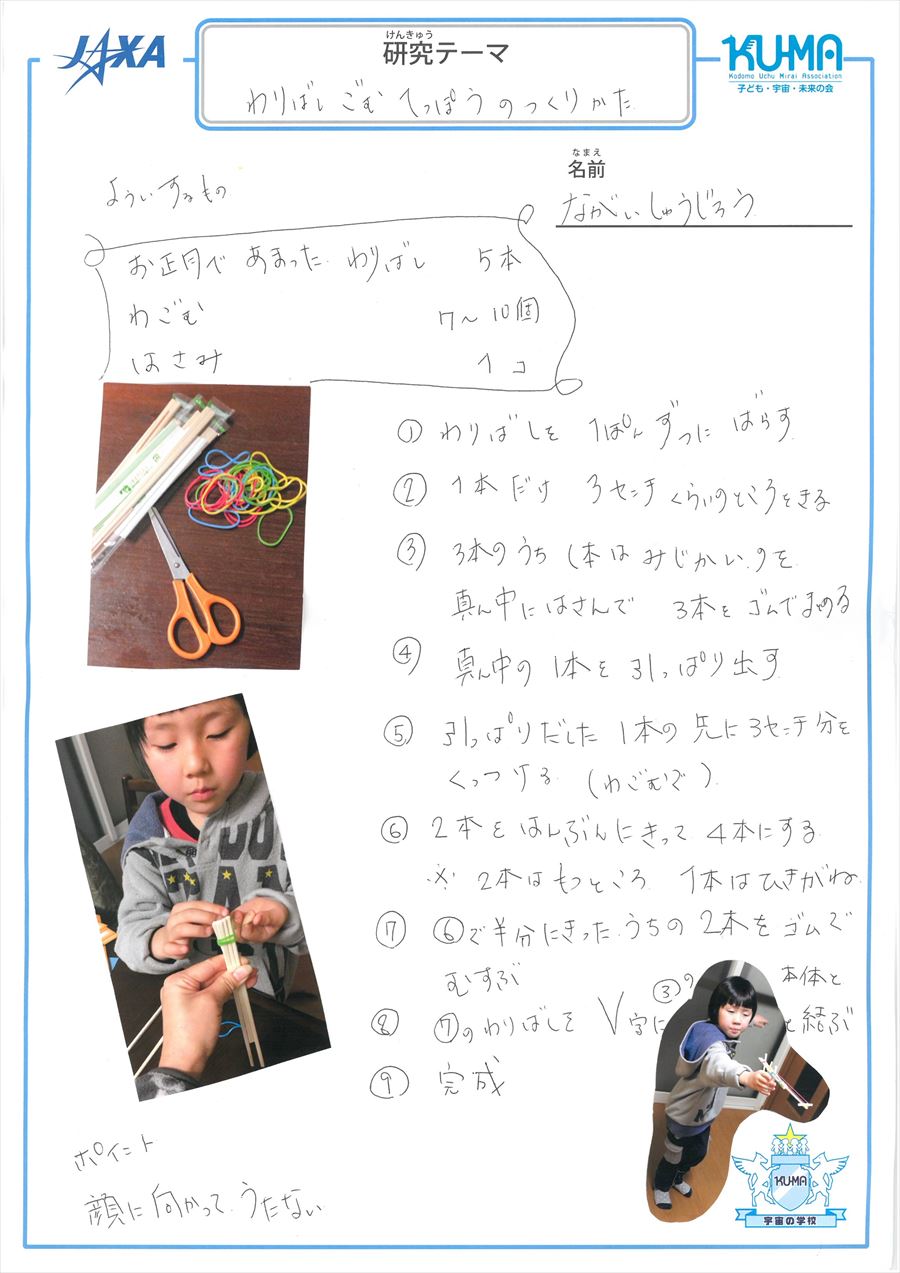 JAXA
けんきゅう
研究テーマ
わりばし ごむ てっぽう の つくりかた
KU-MA
Kodomo Uchu Mirai Association
子ども・宇宙・未来の会
なまえ
名前
ながい しゅうじろう
よういするもの
お正月で あまった わりばし 5本
わごむ 7〜10個
はさみ 1コ
① わりばしを 1ぽんずつに ばらす
② 1本だけ 3センチくらいのところをきる
③ 3本のうち 1本は みじかいのを
真ん中にはさんで 3本をゴムでまとめる
④ 真ん中の 1本を 引っぱり出す
⑤ 引っぱりだした 1本の先に3センチ分を
くっつける (わごむで)
⑥ 2本を はんぶんにきって 4本にする
※ 2本はもつところ 1本はひきがね
⑦ ⑥で半分にきった うちの 2本を ゴムで
むすぶ
⑧ ⑦のわりばしを V字に ③の 本体と
と結ぶ
⑨ 完成
ポイント
顔に向かって うたない
KU-MA
宇宙の学校